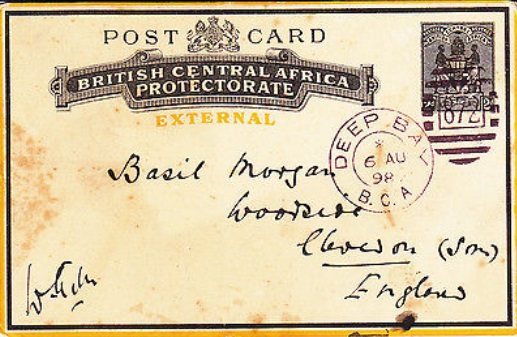 POST CARD
BRITISH CENTRAL AFRICA
PROTECTORATE
EXTERNAL
672
DEEP BAY
6 AU
98
B.C.A
Basil Morgan
Woodside
Clevedon (Som)
England